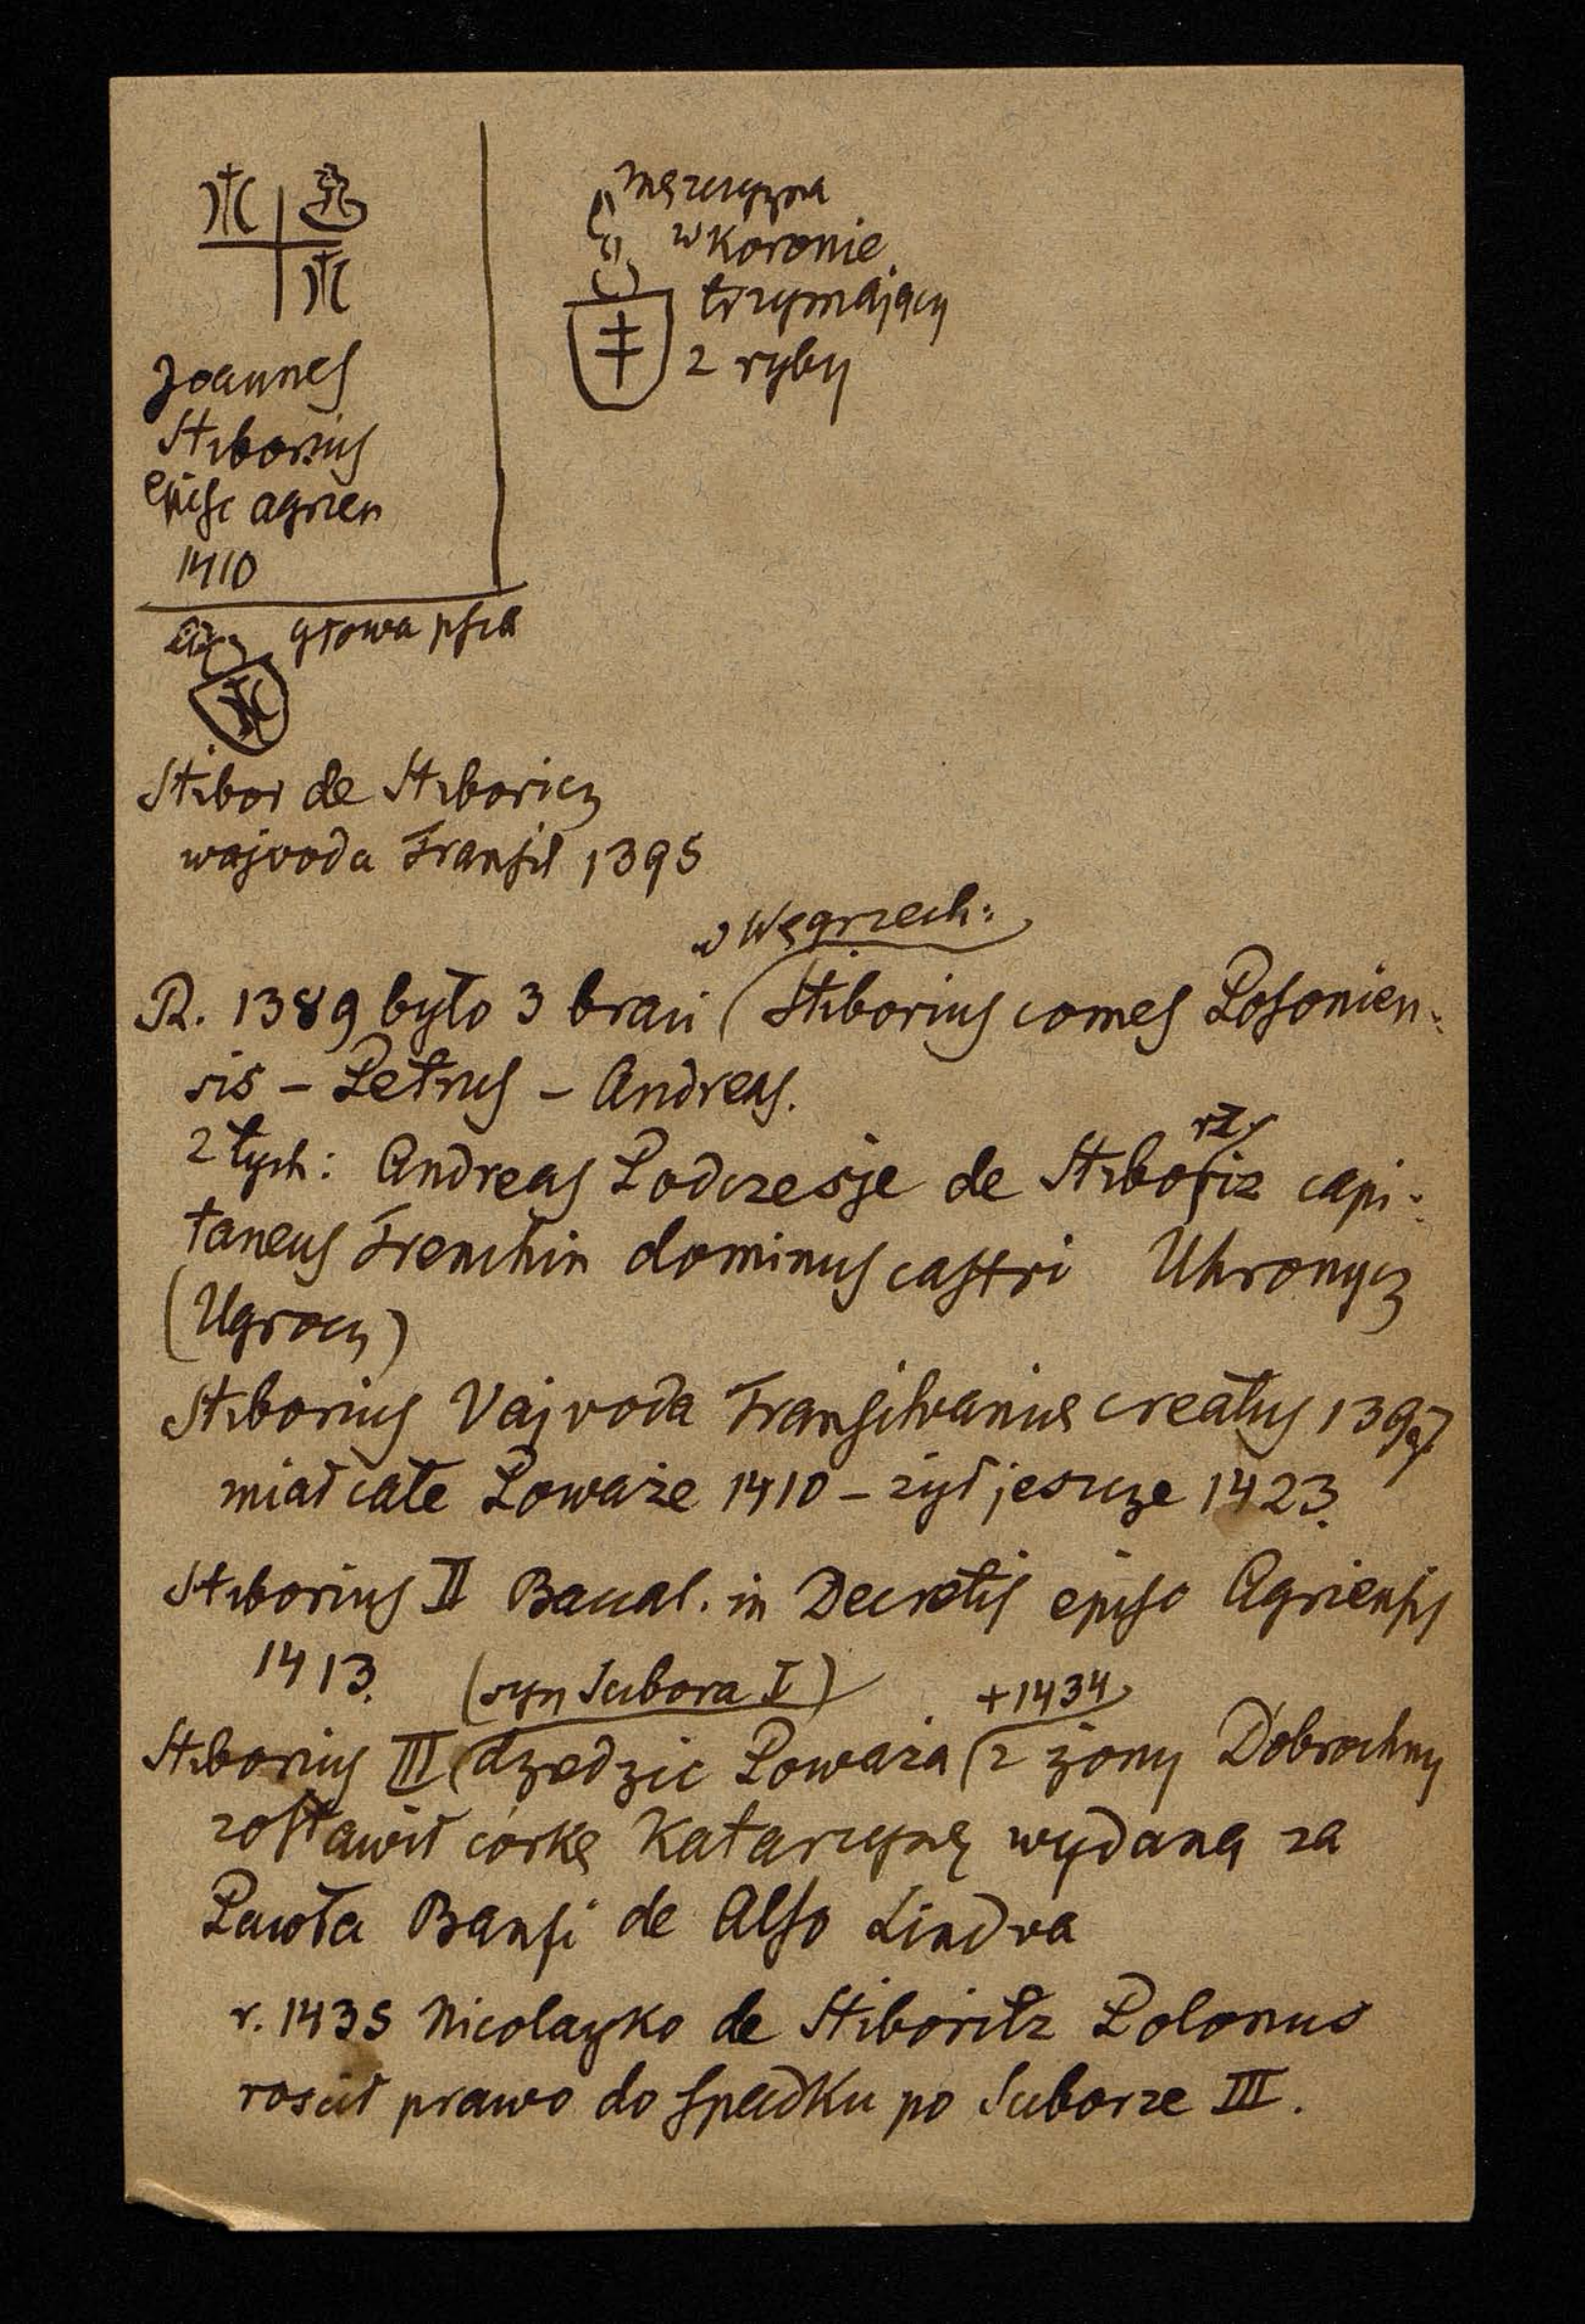 Joannes
Stiborius
episc agrien
1410
mężczyzna
w koronie
trzymający
2 ryby
głowa psia
Stibor de Stiboricz
wajvoda Transil 1395
w Węgrzech:
R. 1389 było 3 braci (Stiborius comes Posonien-
sis – Petrus – Andreas.
z tych: Andreas Podczesje de Stiboriz capi-
rz
taneus Trenchin dominus castri Uhronycz
(Ugrocz)
Stiborius Vajvoda Transilvaniae creatus 1397
miał całe Poważe 1410 – żył jeszcze 1423.
Stiborius II Bacal. in Decretis episc Agriensis
1413.
(syn Scibora I) +1434
Stiborius III (dziedzic Poważa (z żony Dobrochny
zostawił córkę Katarzynę wydaną za
Pawła Banfi de Also Lindva
r. 1435 Nicolayko de Stiboritz Polonus
rościł prawo do spadku po Sciborze III.